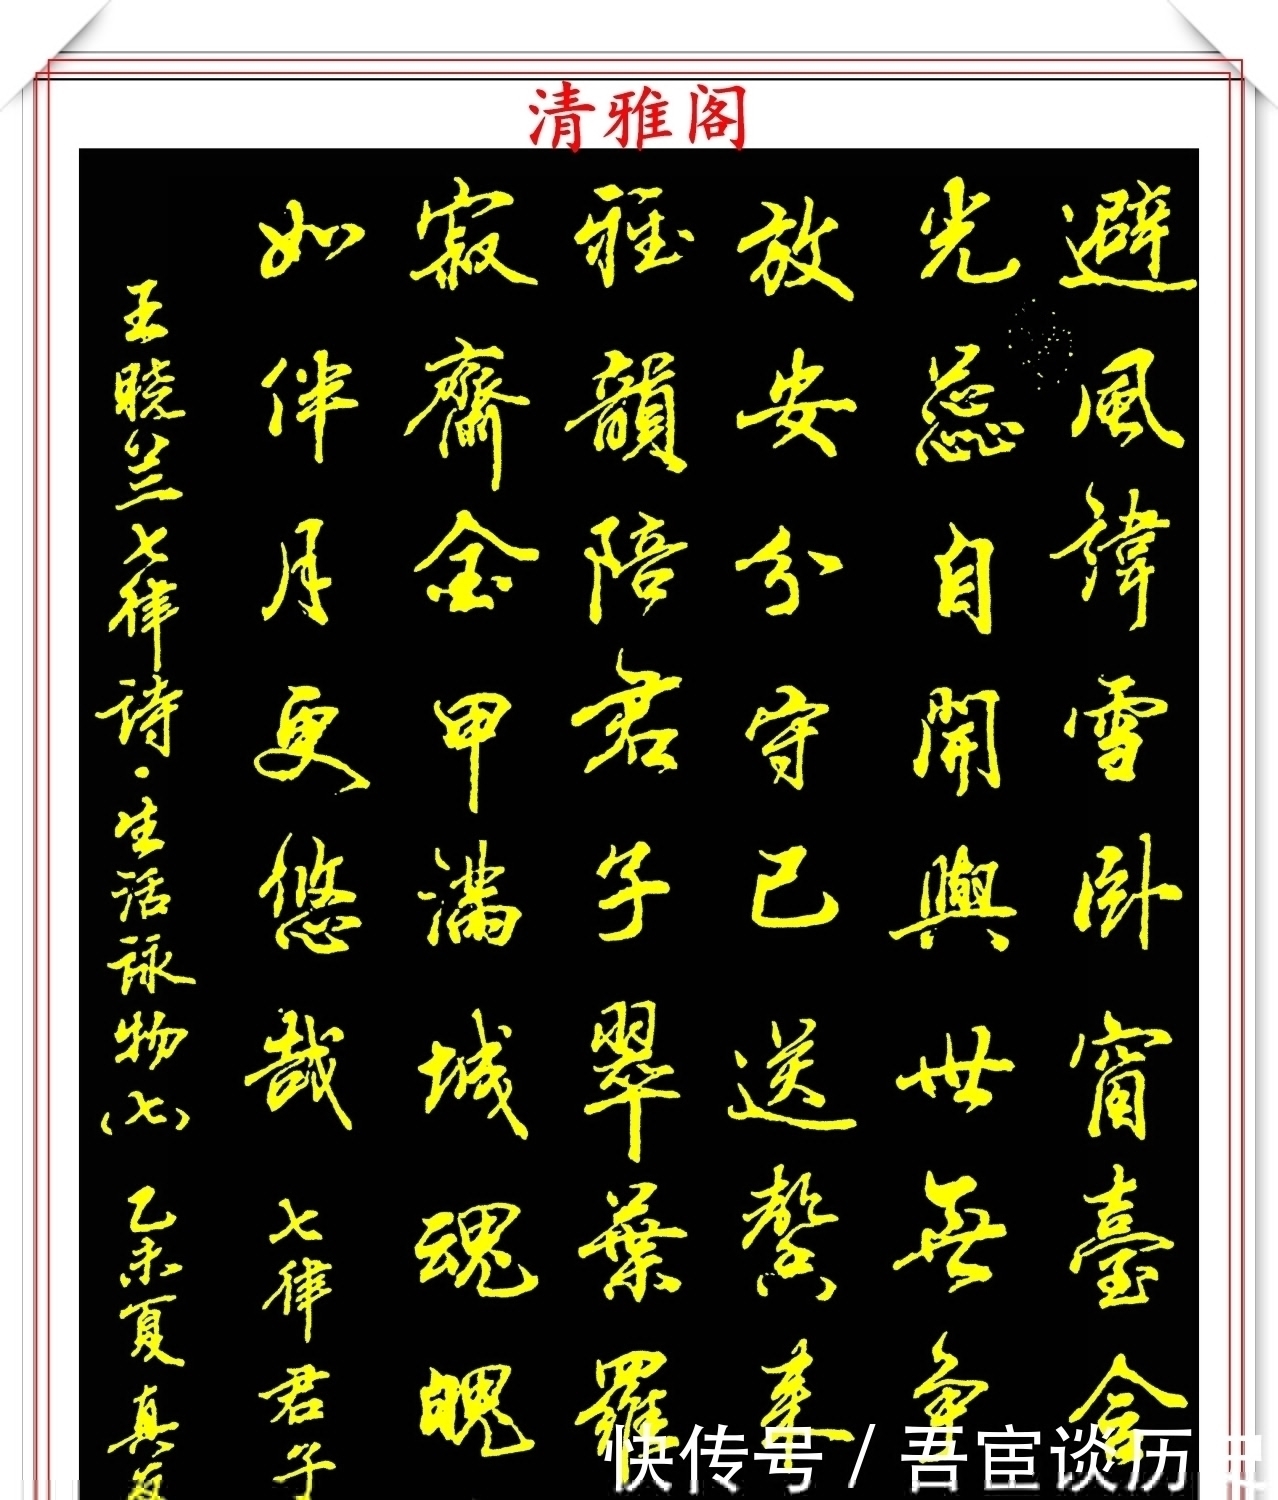 清雅阁
避風諱雪卧窗臺含
光蕊自開與世無争
放安分守已送馨来
雅韻陪君子翠葉羅
寂齋金甲满城魂魄
如伴月更悠哉 七律君子
王晓兰七律诗·生活詠物(七) 乙未夏真
快传号 / 吾宦谈历史